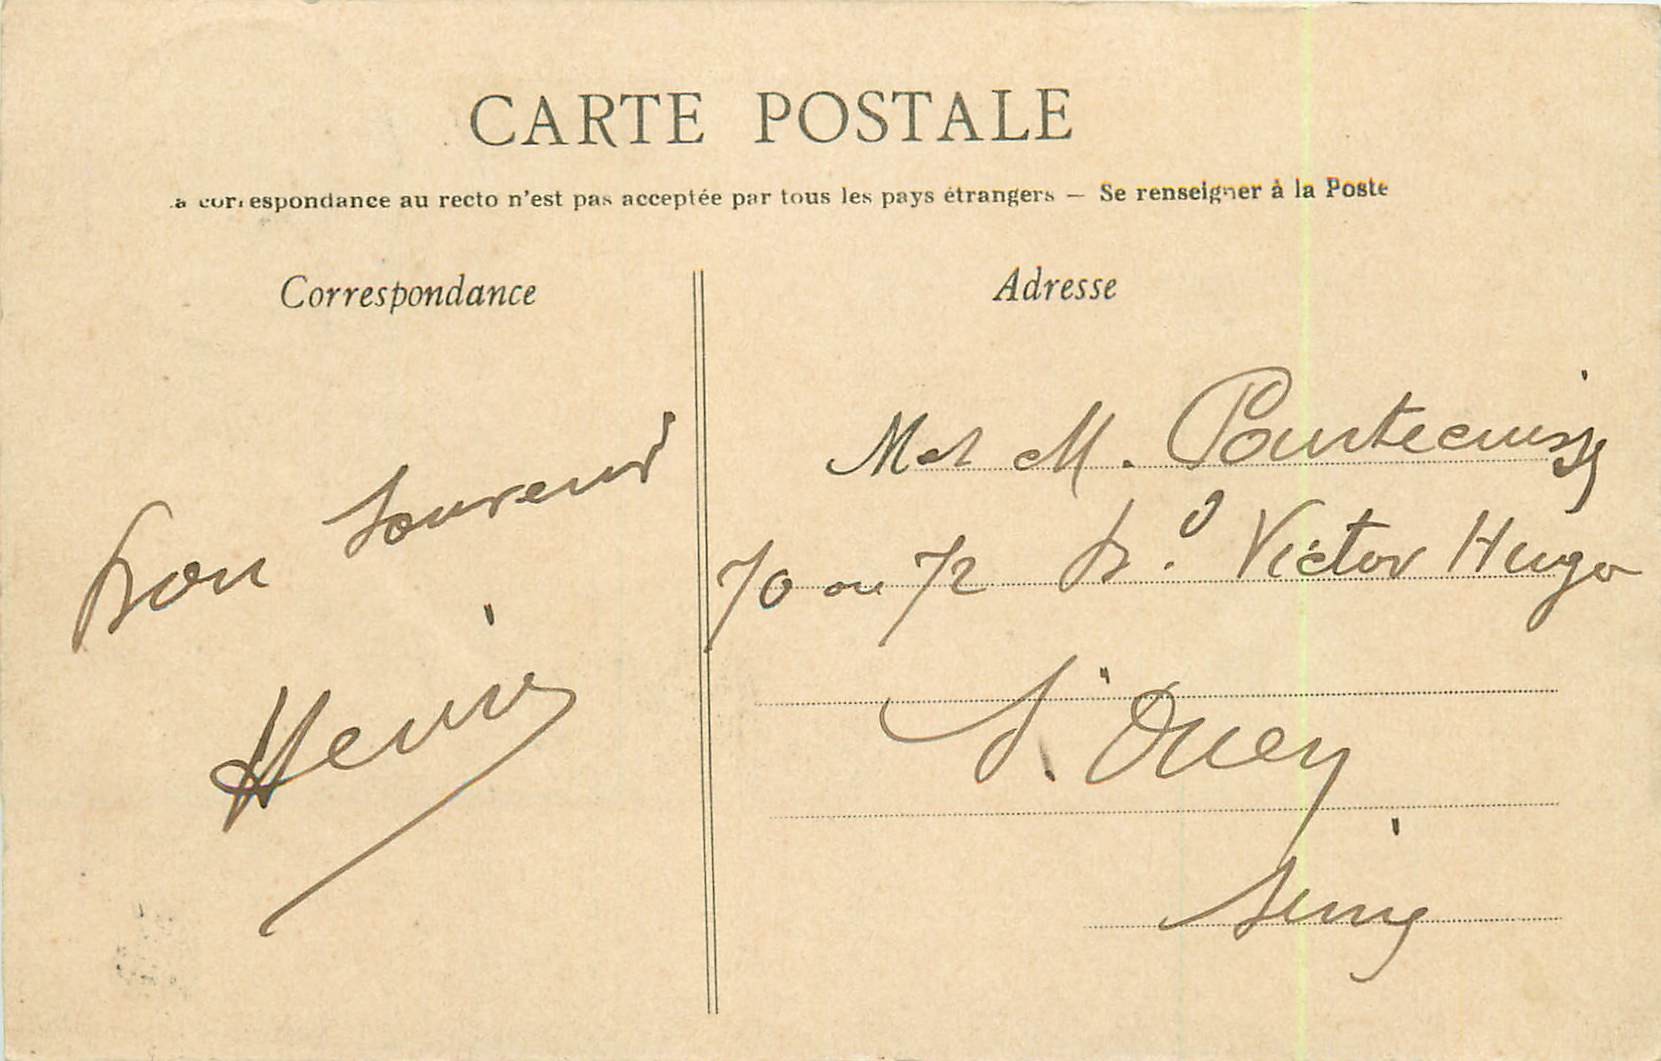 CARTE POSTALE
a correspondance au recto n'est pas acceptée par tous les pays étrangers — Se renseigner à la Poste
Correspondance
Bon souvenir
Henri
Adresse
M et M.
70 ou 72 B.d Victor Hugo
St Ouen
Seine